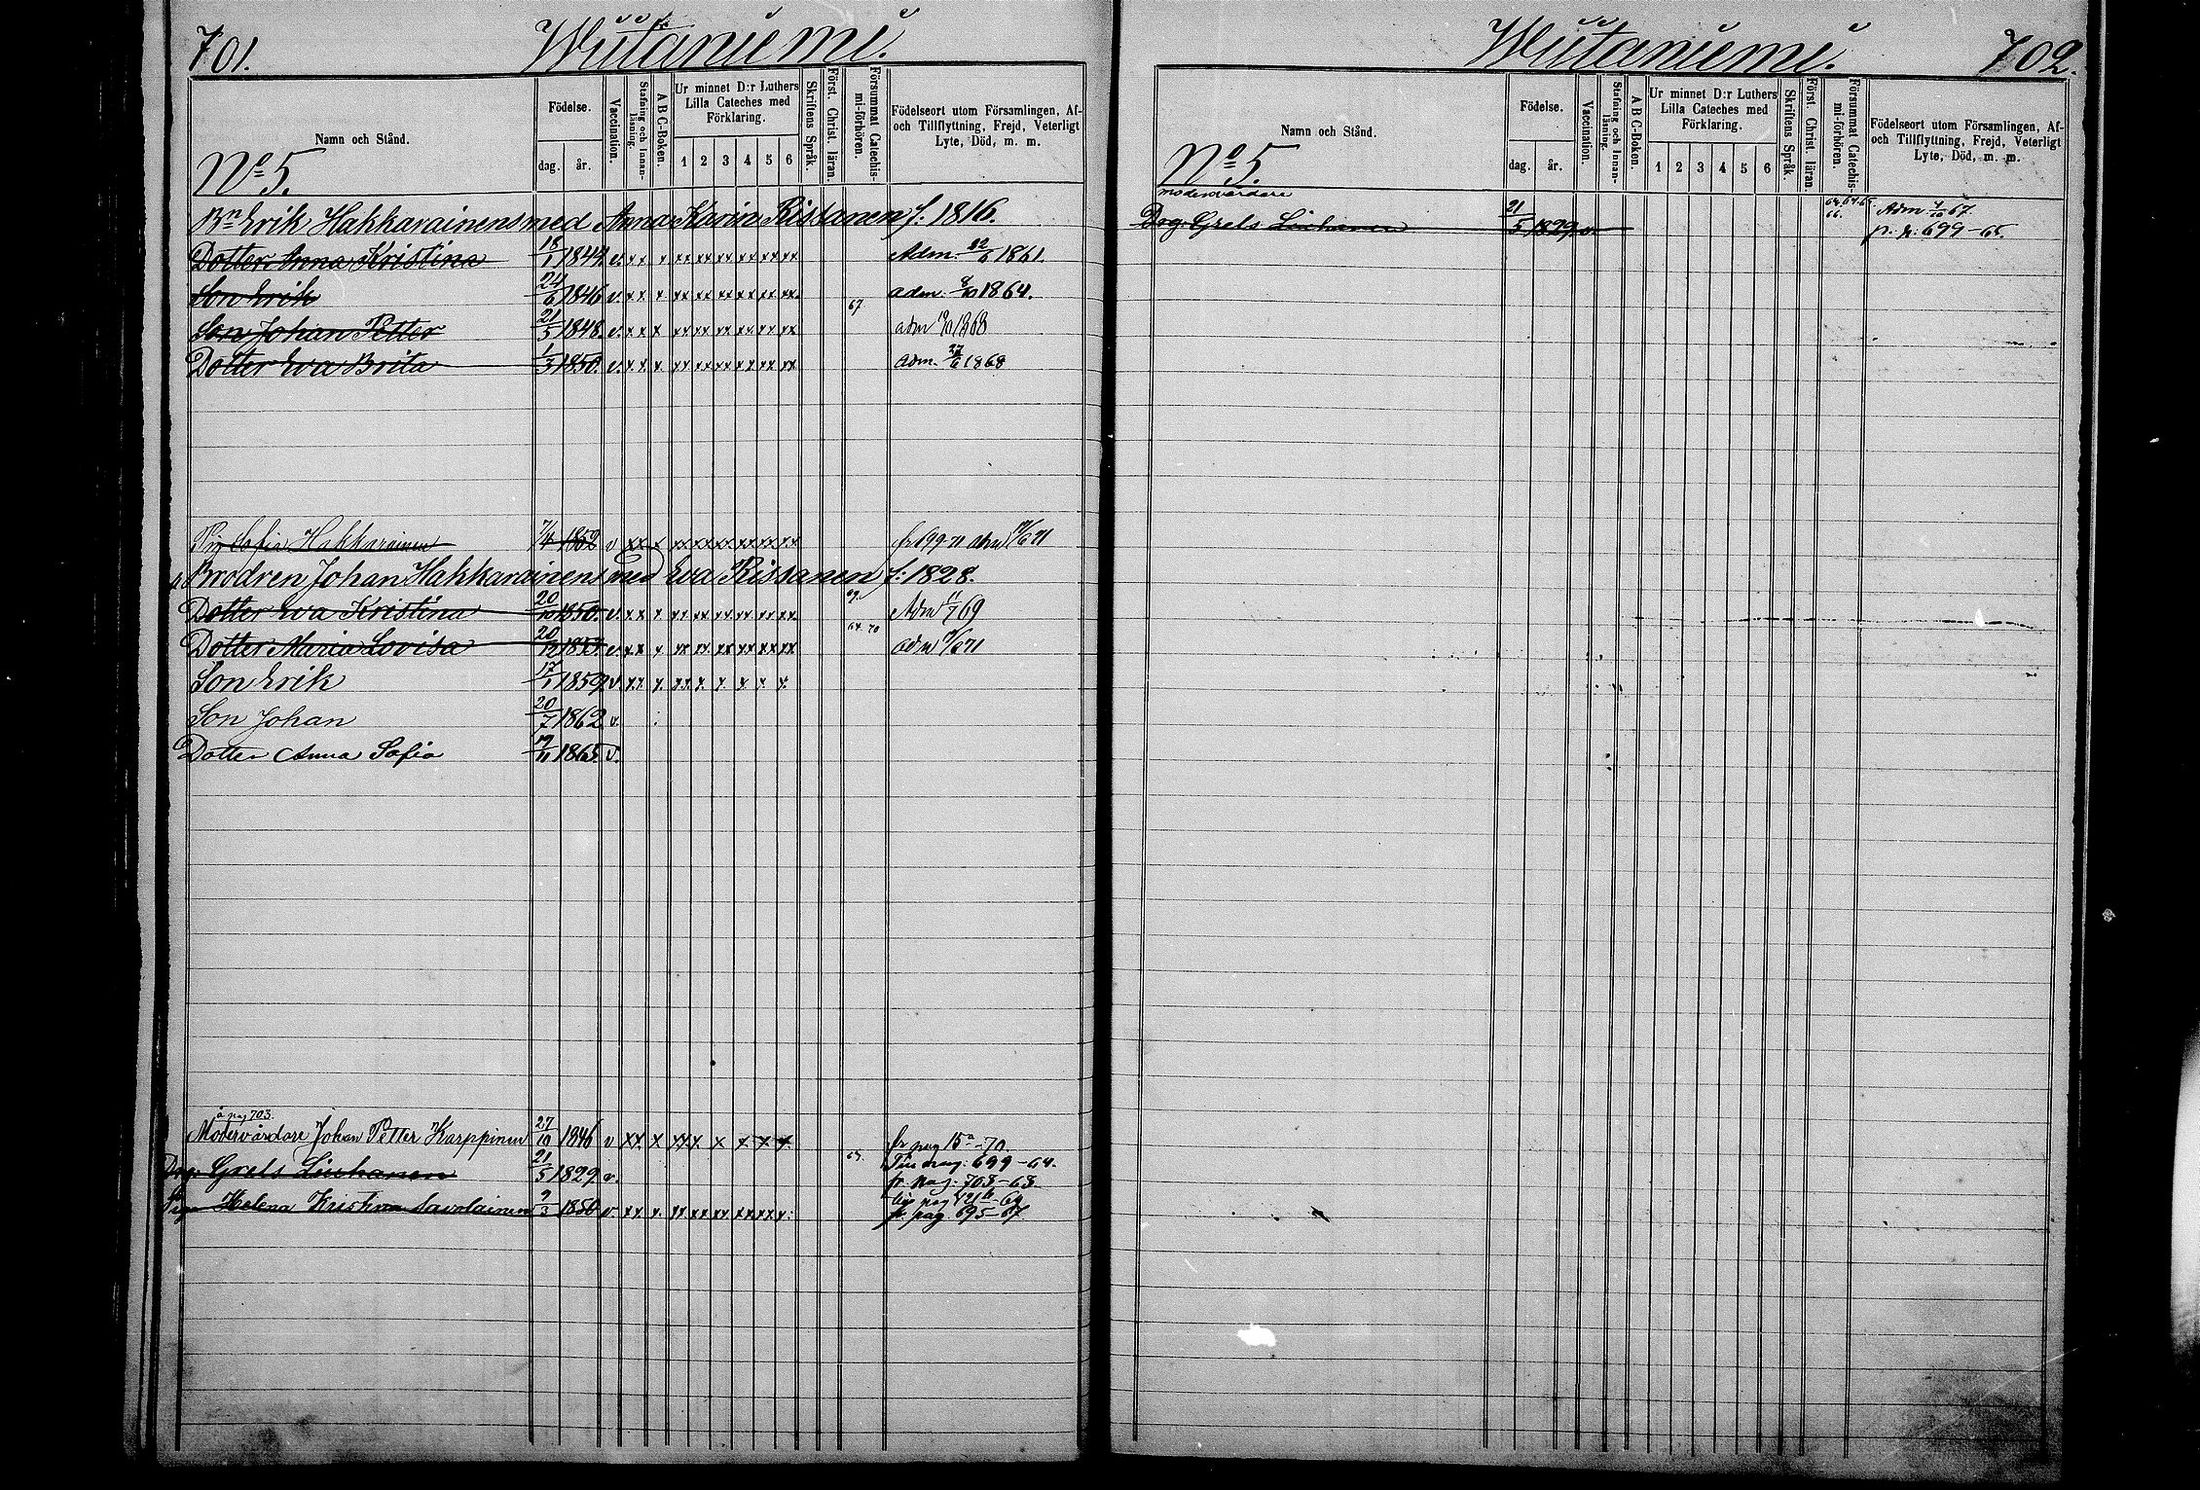 701. Wiitaniemi.
Namn och Stånd.
Födelse.
dag. år.
Vaccination.
Stafning och Innan-läsning.
A B C-Boken.
Ur minnet D:r Luthers
Lilla Cateches med
Förklaring.
1 2 3 4 5 6
Skriftens Språk.
Först. Christ. läran.
Försummat Catechis-mi-förhören.
Födelseort utom Församlingen, Af-
och Tillflyttning, Frejd, Veterligt
Lyte, Död, m. m.
No 5.
Bn Erik Hakkarainens med Anna Karin Rissanen f: 1816.
Dotter Anna Kristina 18/1 1844 v. x x x xx xx xx xx xx xx Adm. 22/6 1861.
Son Erik 24/6 1846 v. x x x xx xx xx xx xx xx adm. 9/10 1864.
67.
Son Johan Petter 21/5 1848 v. x x x xx xx xx xx xx xx adm 1868
Dotter Eva Brita 1/3 1850. v. x x x xx xx xx xx xx xx adm. 27/6 1868
Pig Sofia Hakkarainen 7/4 1852 v xx x xx xx xx xx xx xx fr 699-71 adm 71
Brodren Johan Hakkarainens med Eva Rissanen f: 1828.
Dotter Eva Kristina 20/10 1850. v. x x x xx xx xx xx xx xx Adm 69
64. 70
Dotter Maria Lovisa 20/12 v. x x x xx xx xx xx xx xx adm 71
Son Erik 17/1 1859 v. x x x. x x x. x x x. x.
Son Johan 20/7 1862 v.
Dotter Anna Sofia 19/11 1865 v.
å pag 703.
Modervårdare Johan Petter Karppinen 27/10 1846 v xx x xxx x x x x fr pag 15a-70
Drg. Grels Liuhanen 21/5 1829 v. Fr. pag. 699-64.
fr. pag. 703-68.
Piga Helena Kristina Savolainen 9/3 1850 v xx x. xx xx xx xx xx x.
fr pag 695-67.
Wiitaniemi. 702.
Namn och Stånd.
Födelse.
dag. år.
Vaccination.
Stafning och Innan-läsning.
A B C-Boken.
Ur minnet D:r Luthers
Lilla Cateches med
Förklaring.
1 2 3 4 5 6
Skriftens Språk.
Först. Christ. läran.
Försummat Catechis-mi-förhören.
Födelseort utom Församlingen, Af-
och Tillflyttning, Frejd, Veterligt
Lyte, Död, m. m.
No 5.
modervårdare
Drg. Grels Liuhanen 21/5 1829 v. 66. Adm 67.
fr. p. 699-65.